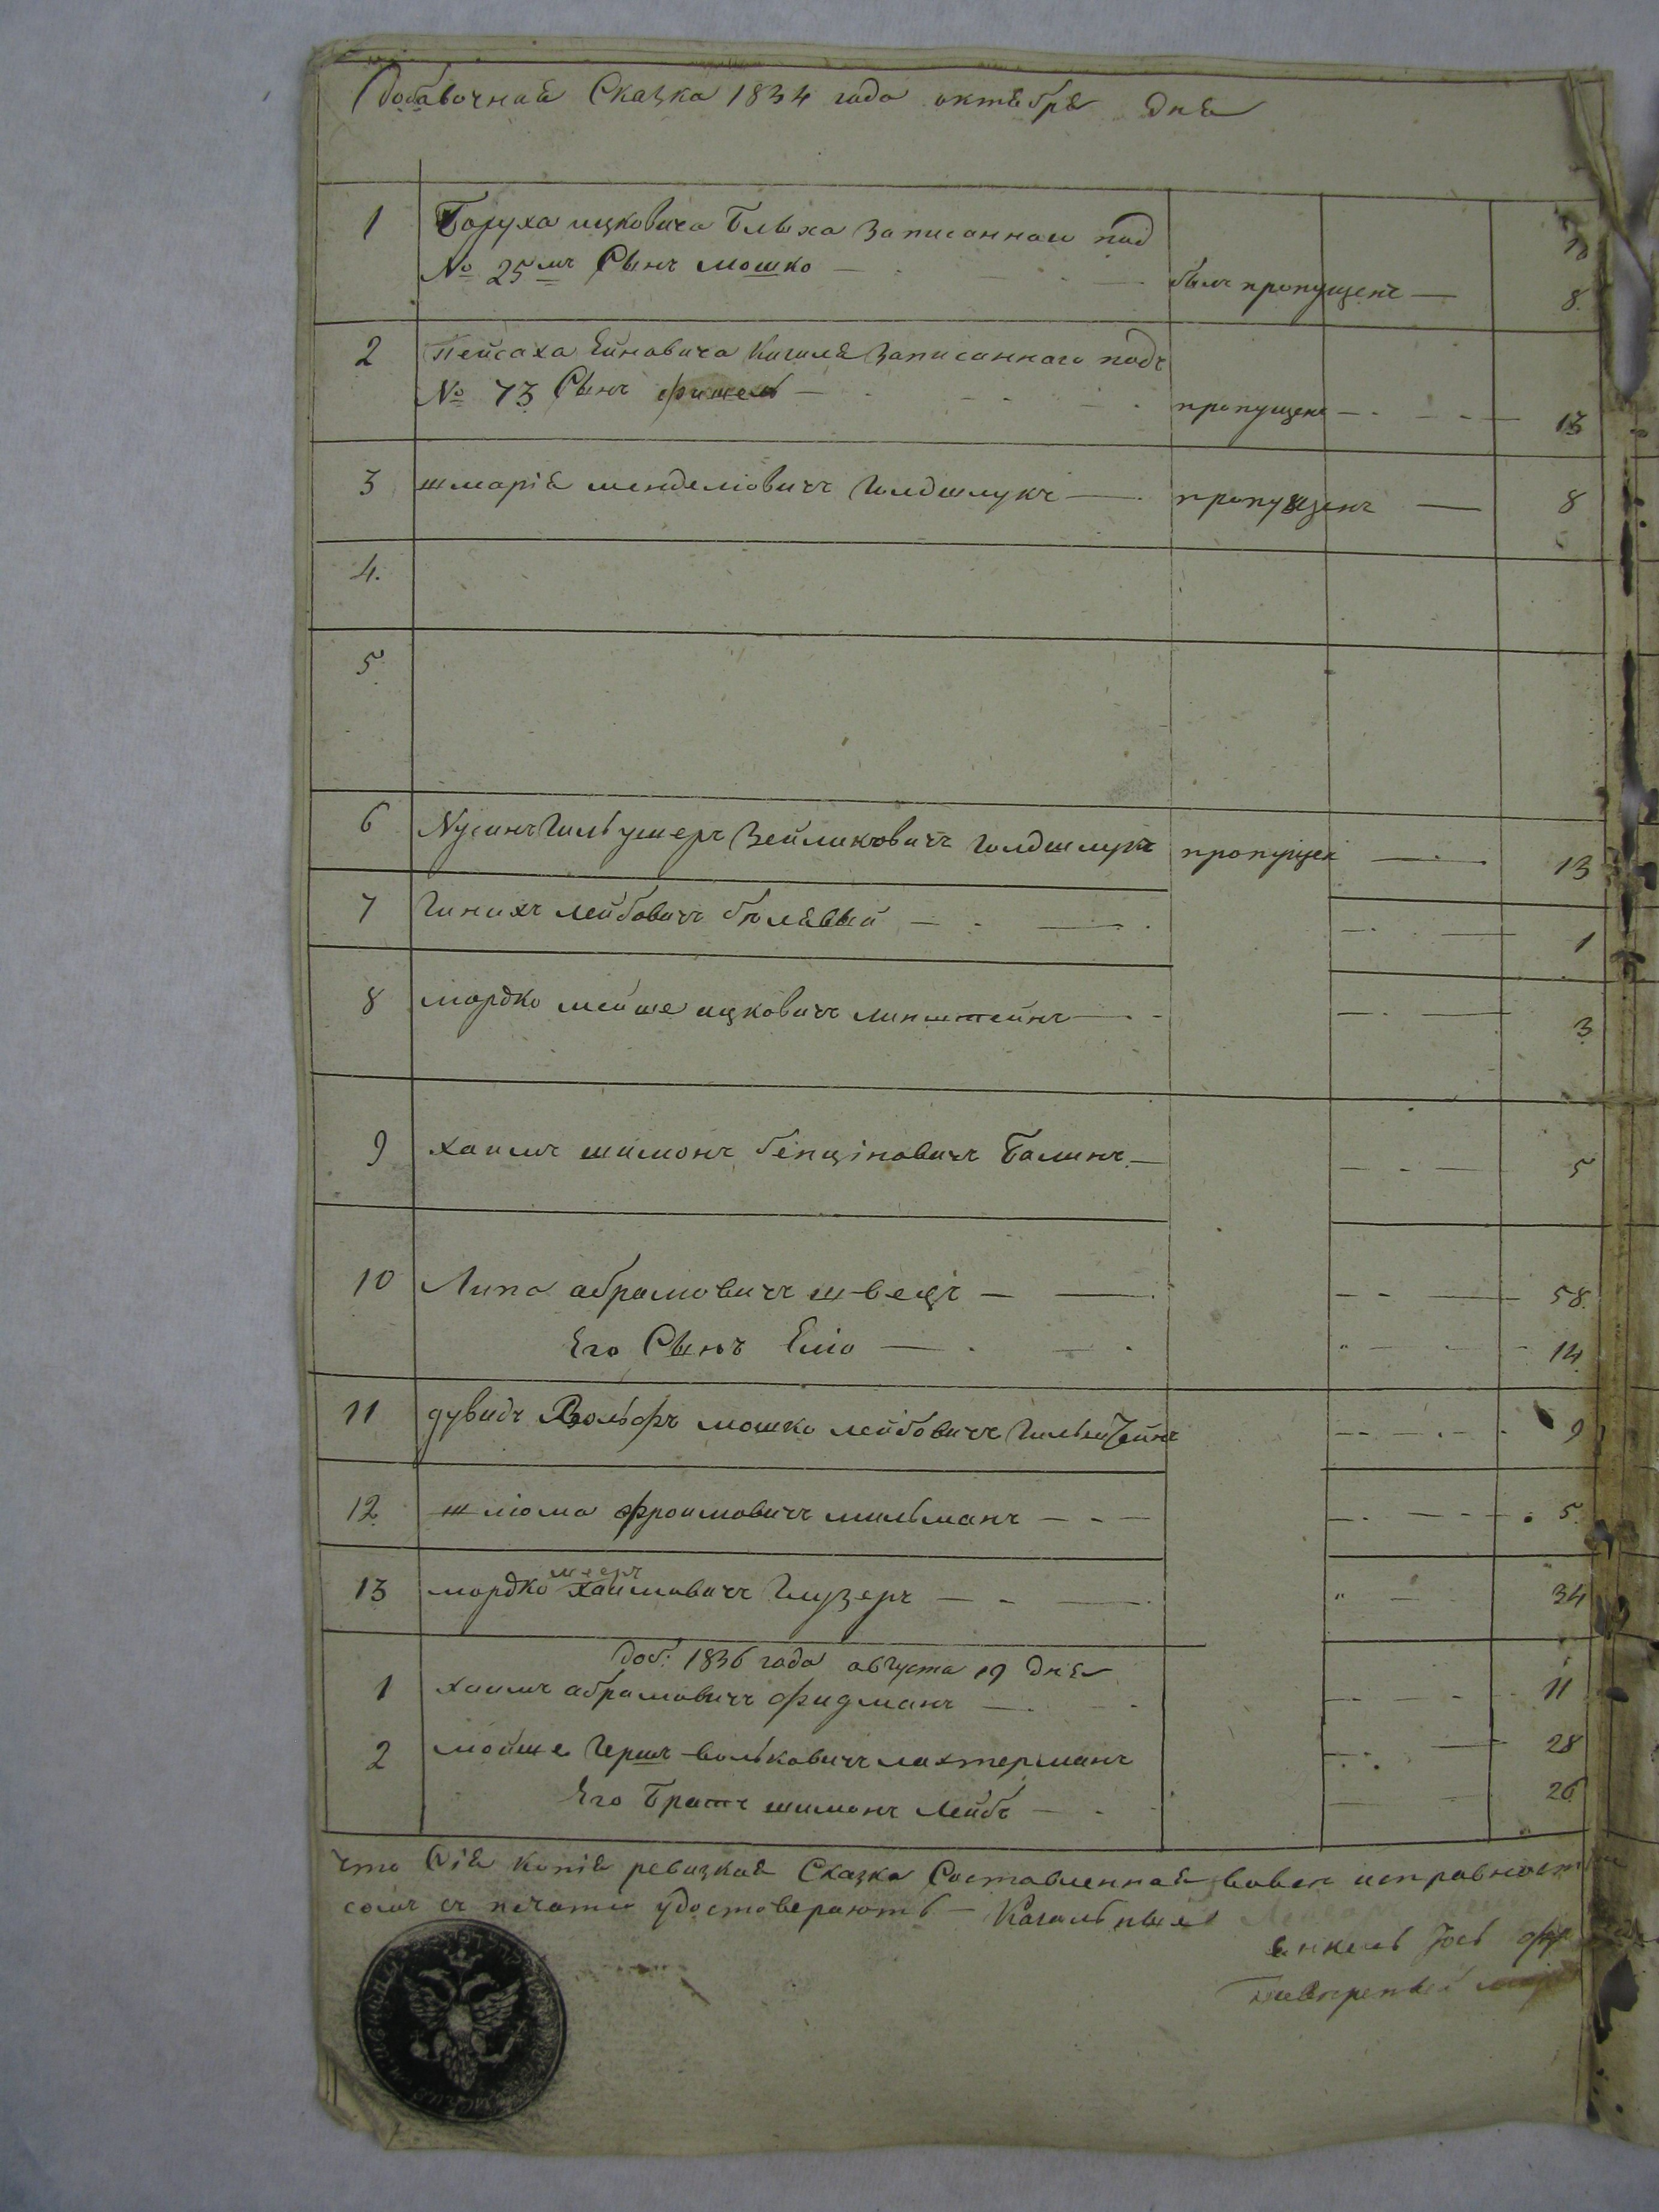 Добавочная Сказка 1834 года октября дня
1 Баруха ицковича Блыха Записаннаго под
№ 25мъ Сынъ мошко — былъ пропущенъ — 8.
2 пейсаха Записаннаго подъ
№ 73 Сынъ фишель — пропущенъ — 13
3 шмарiя менделiовичъ Голдшмукъ — пропущенъ — 8
4.
5
6 Нусинъ Зейликовичъ Голдшмукъ пропущен — 13
7 Гинихъ лейбовичъ белявый — 1
8 мордко мейше ицковичъ линштейнъ — 3
9 хаимъ шимонъ бенцiновичъ Балинъ — 5
10 Липа абрамовичъ швецъ — 58.
Его Сынъ Елiо — 14
11 дувидъ Вольфъ мошко лейбовичъ — 9
12. шлiома фроимовичъ мильманъ — 5.
13 мордко мееръ хаимовичъ Глузеръ — 34
Доб: 1836 года августа 19 дня
1 хаимъ абрамовичъ фидманъ — 11
2 мойше Гершъ вольковичъ лахтерманъ 28
Его Братъ шимонъ Лейбъ — 26
что Сiя копiя ревизкая Сказка Составленная вовсей исправност
удостоверяютъ — Кагальные
енкель Iось